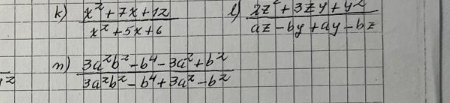 k) (x² + 7x + 12) / (x² + 5x + 6) l) (2z² + 3zy + y²) / (az - by + ay - bz)
n) (3a²b² - b⁴ - 3a² + b²) / (3a²b² - b⁴ + 3a² - b²)